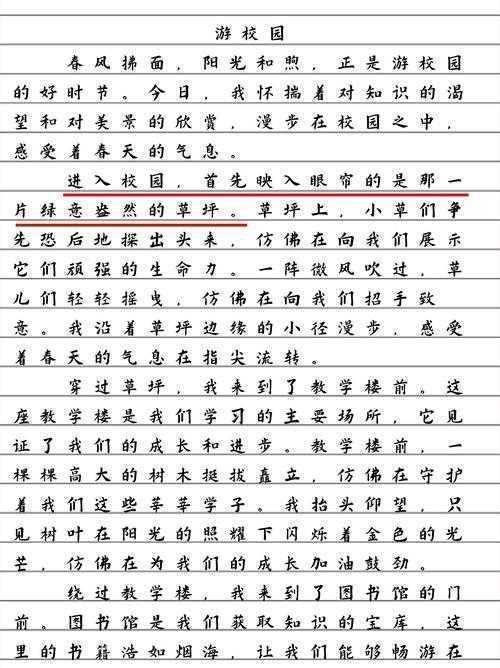 游校园
春风拂面，阳光和煦，正是游校园
的好时节。今日，我怀揣着对知识的渴
望和对美景的欣赏，漫步在校园之中，
感受着春天的气息。
进入校园，首先映入眼帘的是那一
片绿意盎然的草坪。草坪上，小草们争
先恐后地探出头来，仿佛在向我们展示
它们顽强的生命力。一阵微风吹过，草
儿们轻轻摇曳，仿佛在向我们招手致
意。我沿着草坪边缘的小径漫步，感受
着春天的气息在指尖流转。
穿过草坪，我来到了教学楼前。这
座教学楼是我们学习的主要场所，它见
证了我们的成长和进步。教学楼前，一
棵棵高大的树木挺拔矗立，仿佛在守护
着我们这些莘莘学子。我抬头仰望，只
见树叶在阳光的照耀下闪烁着金色的光
芒，仿佛在为我们的成长加油鼓劲。
绕过教学楼，我来到了图书馆的门
前。图书馆是我们获取知识的宝库，这
里的书籍浩如烟海，让我们能够畅游在